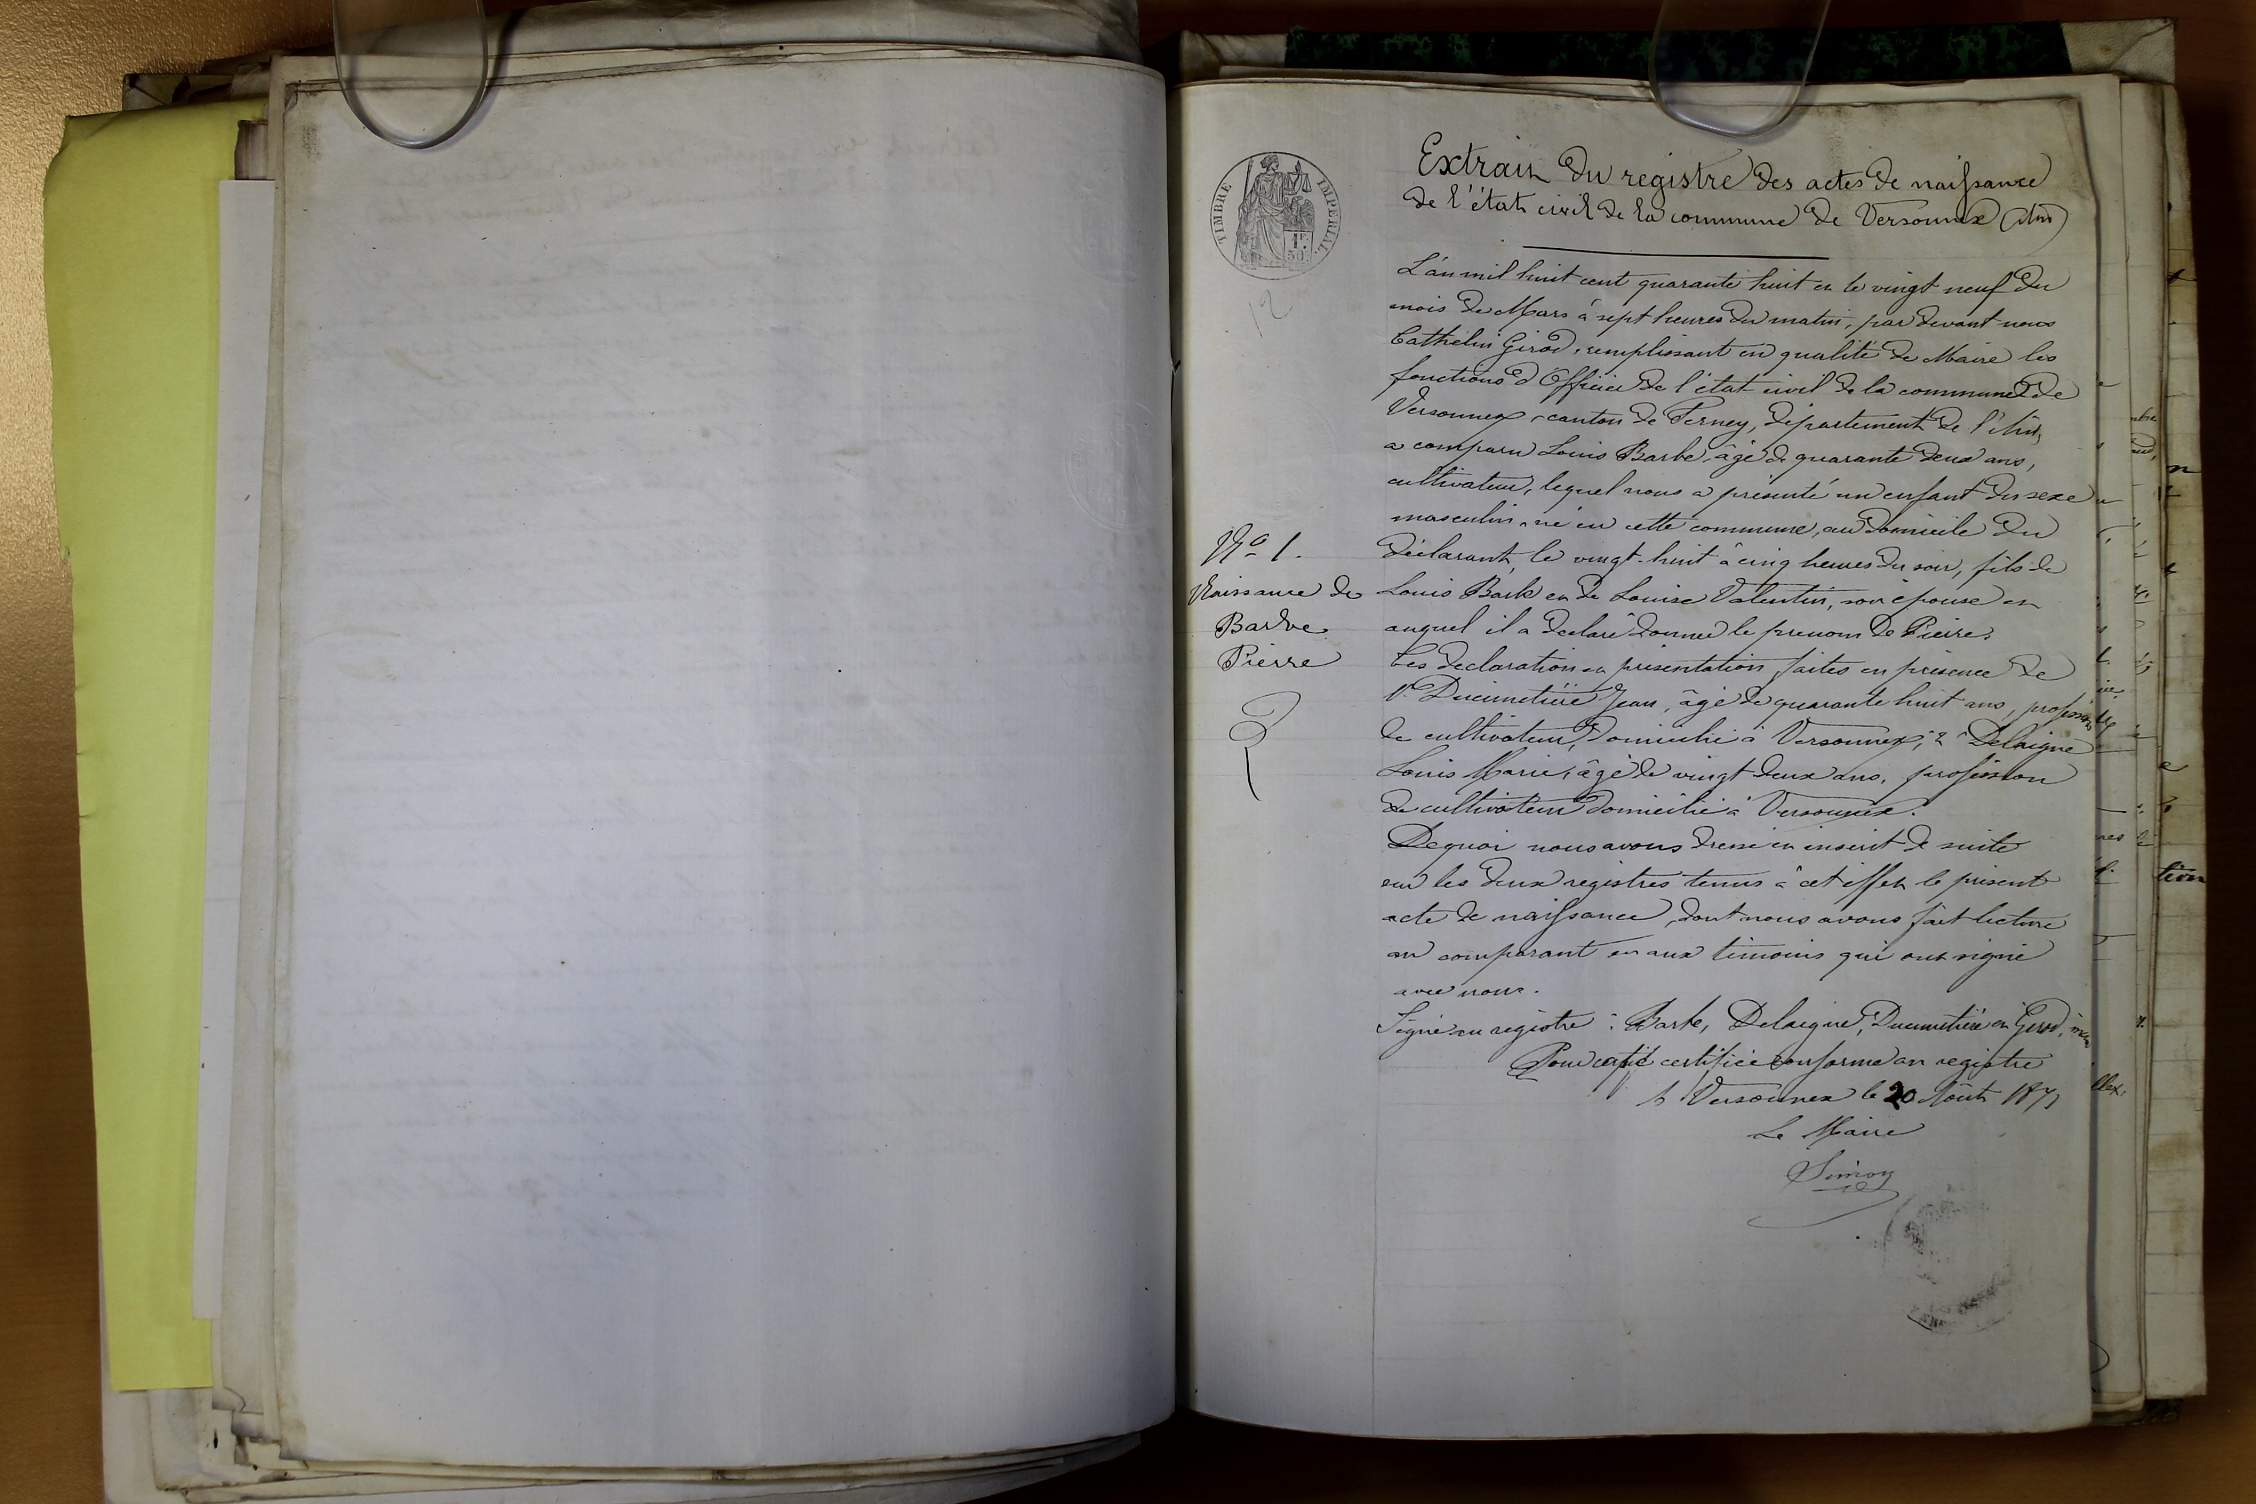 Extrait du registre des actes de naissance
de l'état civil de la commune de Versonnex (Ain)
TIMBRE IMPÉRIAL
1F.
50
12
L'an mil huit cent quarante huit et le vingt neuf du
mois de Mars à sept heures du matin, par devant nous
Cathelin Girod, remplissant en qualité de Maire les
fonctions d'Officier de l'état civil de la commune de
Versonnex, canton de Ferney, département de l'Ain,
a comparu Louis Barbe, âgé de quarante deux ans,
cultivateur, lequel nous a présenté un enfant du sexe
masculin, né en cette commune, au domicile du
déclarant, le vingt-huit à cinq heures du soir, fils de
Louis Barbe et de Louise Valentin, son épouse et
auquel il a déclaré donner le prénom de Pierre.
Les déclaration et présentation faites en présence de
1° Ducimetière Jean, âgé de quarante huit ans, profession
de cultivateur, domicilié à Versonnex, 2° Delaigue
Louis Marie, âgé de vingt deux ans, profession
de cultivateur domicilié à Versonnex.
De quoi nous avons dressé et inscrit de suite
sur les deux registres tenus à cet effet le présent
acte de naissance, dont nous avons fait lecture
au comparant et aux témoins qui ont signé
avec nous.
Signé au registre : Barbe, Delaigue, Ducimetière et Girod,
Pour certifié conforme au registre
à Versonnex le 20 Août 1871
Le Maire
Simon
N° 1.
Naissance de
Barbe
Pierre
tion